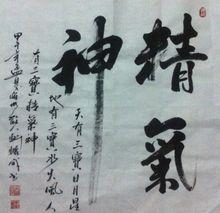 精氣
神
天有三寶日月星
地有三寶水火風人
有三寶精氣神
甲午年孟夏